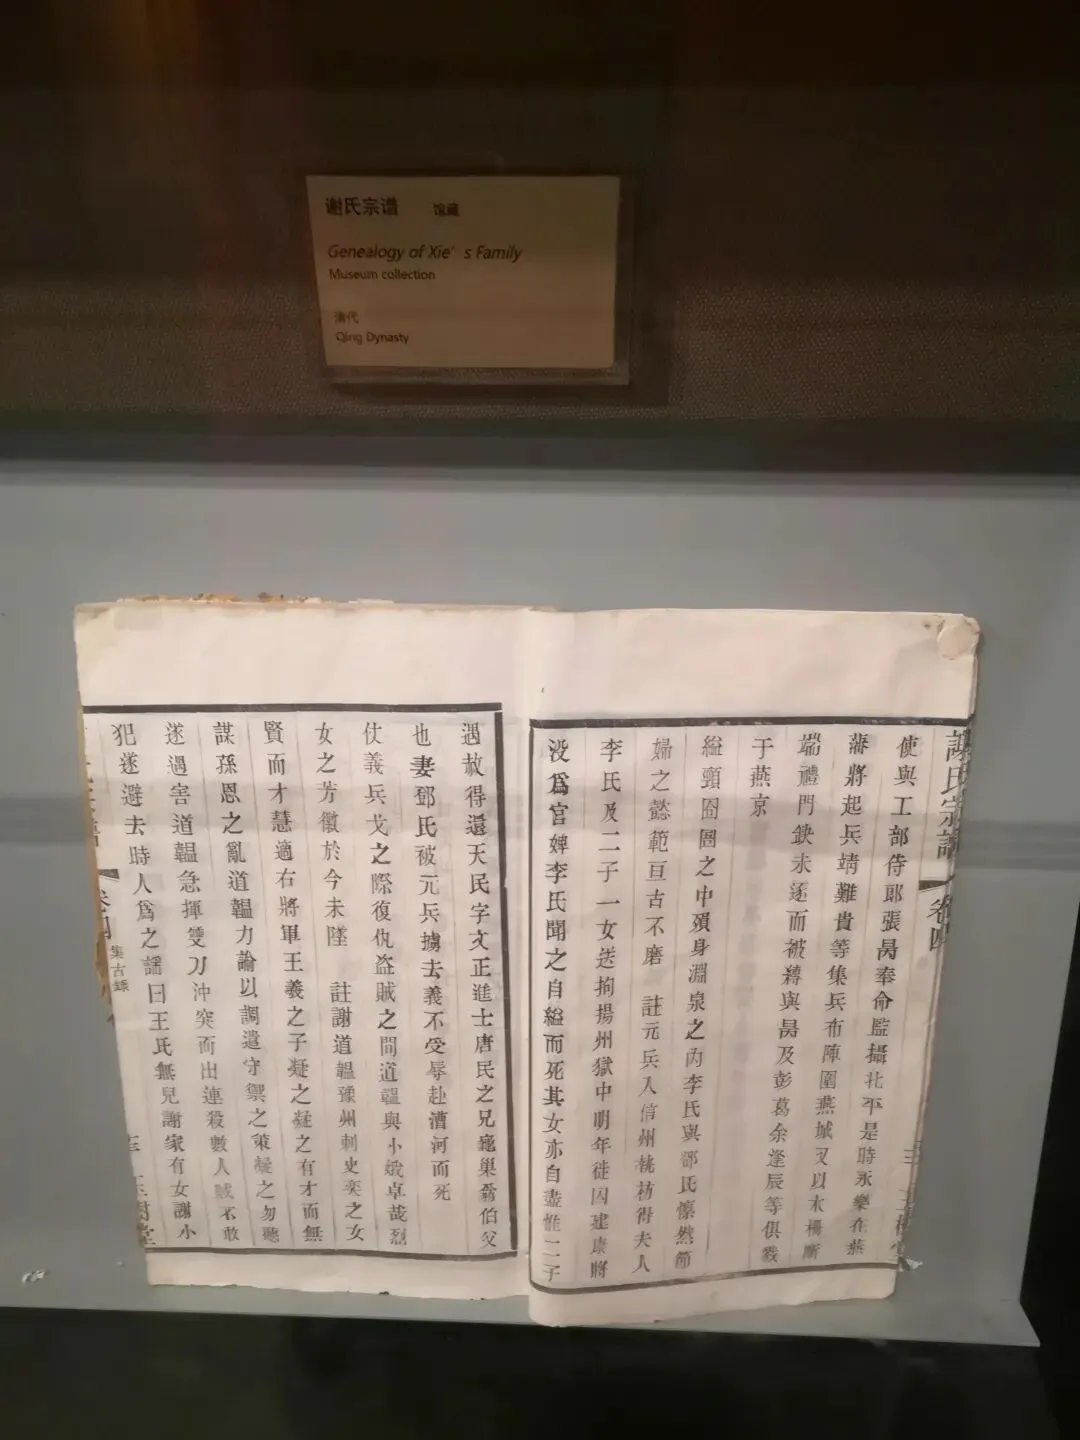 谢氏宗谱 馆藏
Genealogy of Xie's Family
Museum collection
清代
Qing Dynasty
謝氏宗譜
卷四
使與工部侍郎張昺奉命監攝北平是時永樂在燕
藩將起兵靖難貴等集兵布陣圍燕城又以木柵斷
端禮門鈌未逐而被縛與昺及彭葛余逢辰等俱戮
于燕京
縊頸囹圄之中殞身淵泉之內李氏與鄧氏懔然節
婦之懿範亘古不磨 註元兵入信州執枋得夫人
李氏及二子一女送拘揚州獄中明年徒囚建康將
没爲官婢李氏聞之自縊而死其女亦自盡惟二子
遇赦得還天民字文正進士唐民之兄龜巢翁伯父
也妻鄧氏被元兵擄去義不受辱赴漕河而死
仗義兵戈之際復仇盗賊之間道韞與小娥卓哉烈
女之芳徽於今未墜 註謝道韞豫州刺史奕之女
賢而才慧適右將軍王羲之子凝之凝之有才而無
謀孫恩之亂道韞力諭以調遣守禦之策凝之勿聽
遂遇害道韞急揮雙刀沖突而出連殺數人賊不敢
犯遂避去時人爲之謡曰王氏無兒謝家有女謝小
集古錄